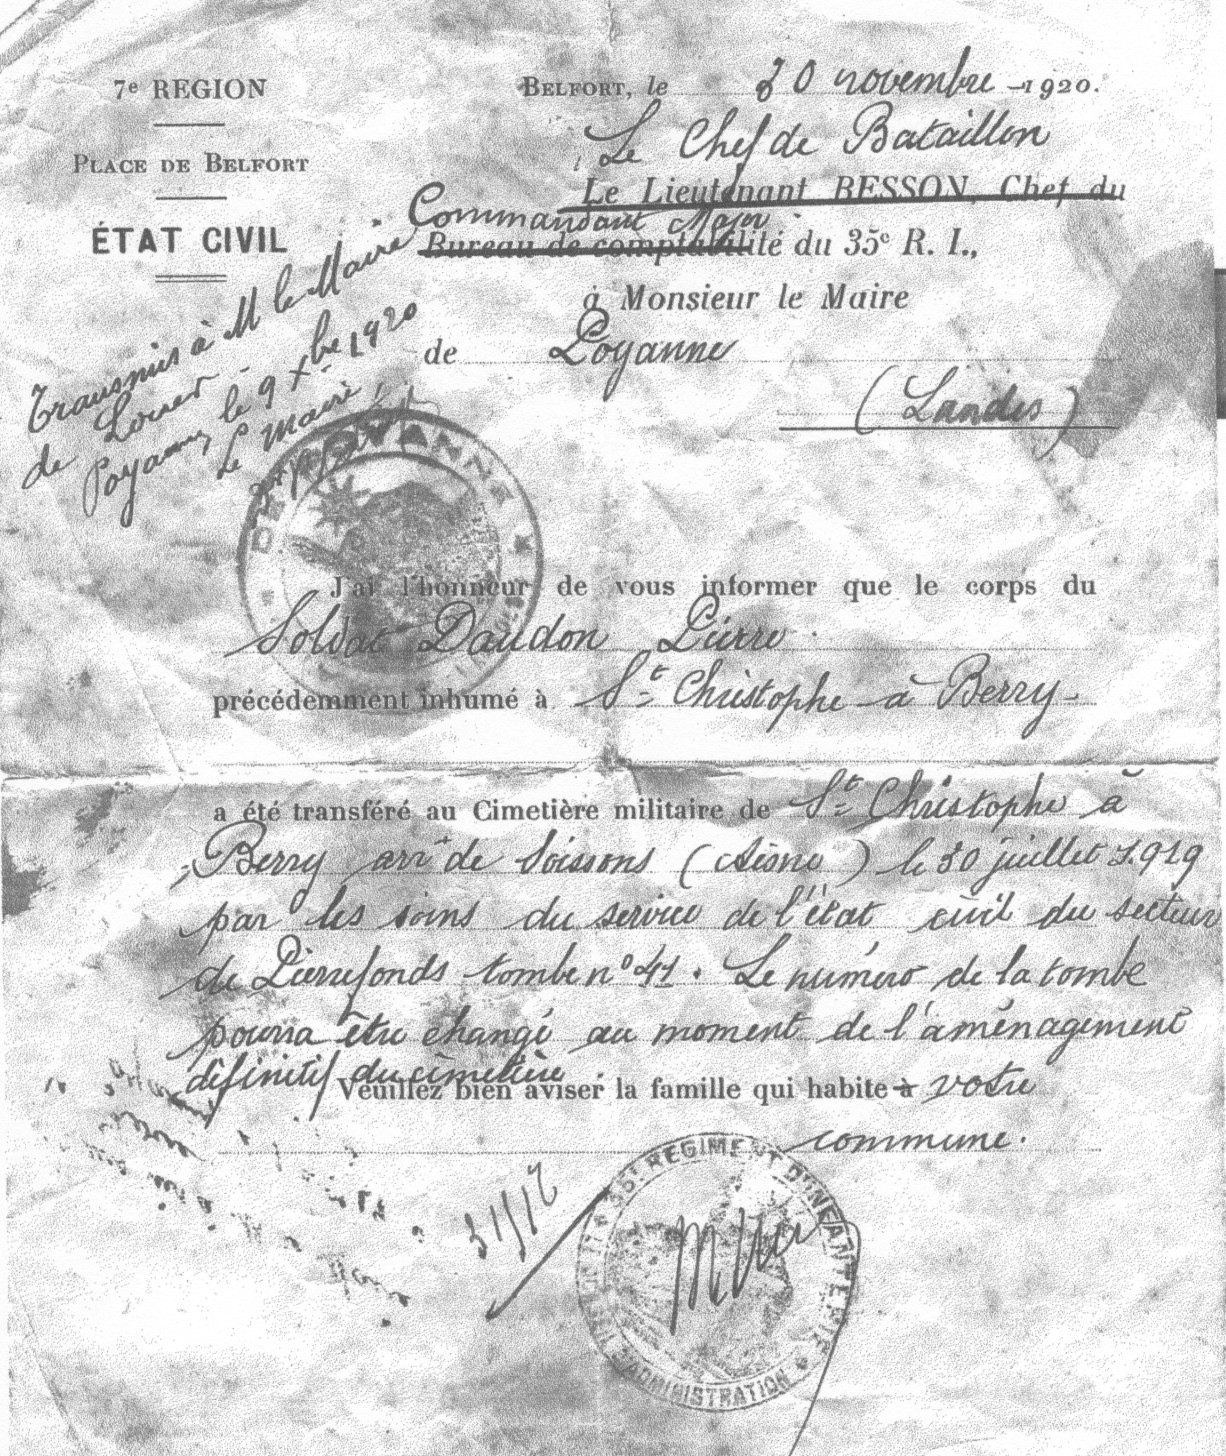 7e REGION
PLACE DE BELFORT
ÉTAT CIVIL
BELFORT, le 30 novembre 1920.
Le Chef de Bataillon
Le Lieutenant BESSON, Chef du
Commandant Major
Bureau de comptabilité du 35e R. I.,
à Monsieur le Maire
de Poyanne
(Landes)
Transmis à M le Maire
de Louer
Poyanne, le 9 Xbre 1920
Le maire,
DE POYANNE
J'ai l'honneur de vous informer que le corps du
Soldat Daudon Pierre
précédemment inhumé à St Christophe - à Berry -
a été transféré au Cimetière militaire de St Christophe à
Berry arrt de Soissons (Aisne) le 30 juillet 1919
par les soins du service de l'état civil du secteur
de Pierrefonds tombe n° 41. Le numéro de la tombe
pourra être changé au moment de l'aménagement
définitif du cimetière.
Veuillez bien aviser la famille qui habite à votre
commune.
35e REGIMENT D'INFANTERIE
D'ADMINISTRATION